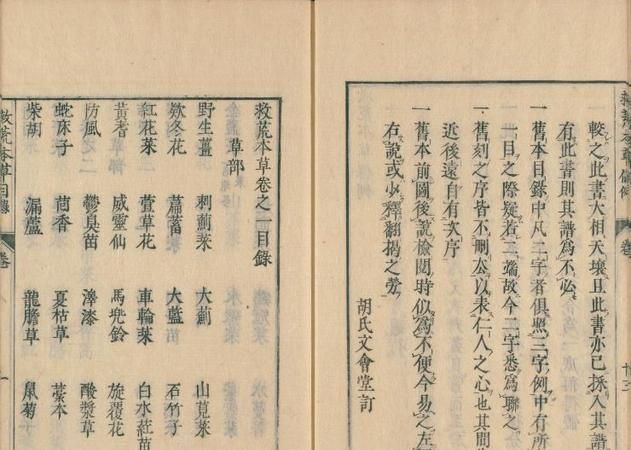 較之此書大相天壤且此書亦已採入其譜
有此書則其譜爲不必
一舊本目錄中凡二字者俱照三字例中有所
一目之際疑若二端故今二字悉爲聯之
一舊刻之序皆不刪去以表仁人之心也其間
近後遠自有次序
一舊本前圖後說檢閱時似爲不便今易之左
右說或少釋翻揭之勞
胡氏文會堂訂
救荒本草卷之一目錄
草部
野生薑 刺薊菜 大薊 山莧菜
欵冬花 萹蓄 大藍苗 石竹子
紅花菜 萱草花 車輪菜 白水葒苗
黃耆 威靈仙 馬兜鈴 旋覆花
防風 鬱臭苗 澤漆 酸漿草
蛇床子 茴香 夏枯草 藁本
柴胡 漏蘆 龍膽草 鼠菊
救荒本草目錄 卷 一